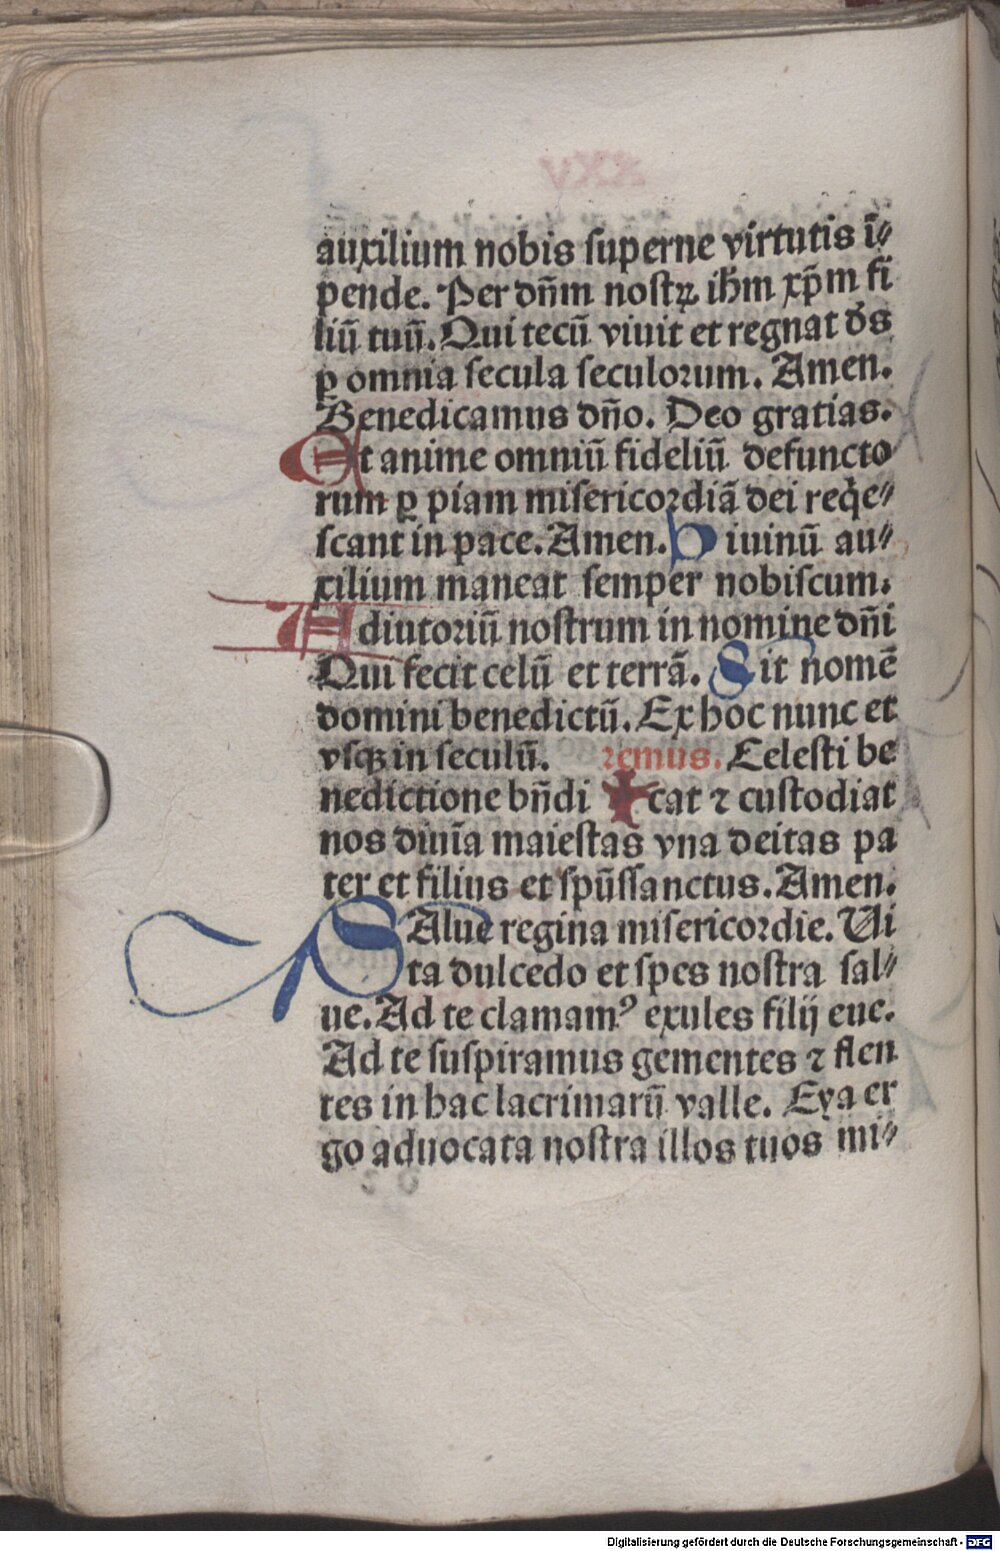 auxilium nobis superne virtutis ī⸗
pende. Per dn̄m nostꝝ ihm̄ xp̄m fi
liū tuū. Qui tecū viuit et regnat d̓s
ꝑ omnia secula seculorum. Amen.
Benedicamus dn̄o. Deo gratias.
Et anime omniū fideliū defuncto
rum ꝑ piam misericordiā dei reqͥe⸗
scant in pace. Amen. Diuinū au⸗
xilium maneat semper nobiscum.
Adiutoriū nostrum in nomine dn̄i
Qui fecit celū et terrā. Sit nomē
domini benedictū. Ex hoc nunc et
vsqꝫ in seculū. remus. Celesti be
nedictione bn̄di ✠ cat ⁊ custodiat
nos diuīa maiestas vna deitas pa
ter et filius et spūssanctus. Amen.
SAlue regina misericordie. Ui
ta dulcedo et spes nostra sal⸗
ue. Ad te clamamꝰ exules filij eue.
Ad te suspiramus gementes ⁊ flen
tes in hac lacrimarū valle. Eya er
go aduocata nostra illos tuos mi⸗
Digitalisierung gefördert durch die Deutsche Forschungsgemeinschaft - DFG